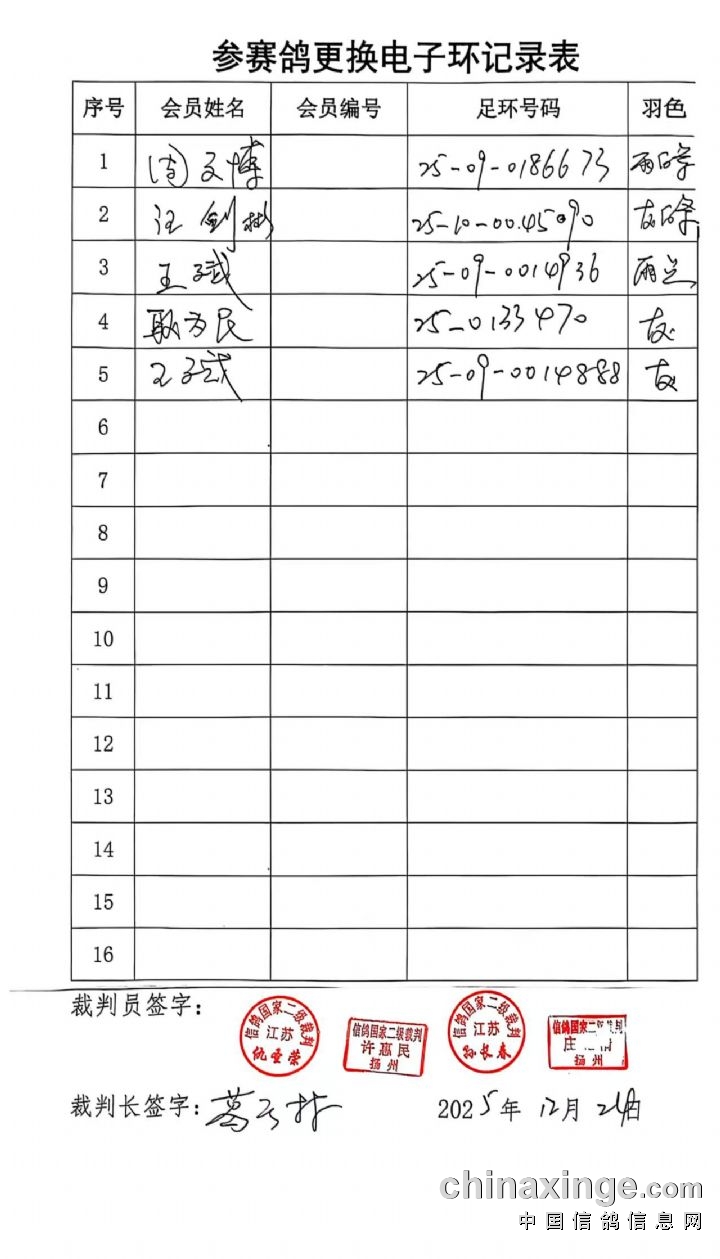 参赛鸽更换电子环记录表
序号 会员姓名 会员编号 足环号码 羽色
1 周文博 25-09-0186673 雨白条
2 汪剑彬 25-10-0045090 灰白条
3 王斌 25-09-0014936 雨点
4 耿为民 25-0133470 灰
5 王斌 25-09-0014888 灰
6
7
8
9
10
11
12
13
14
15
16
裁判员签字：
信鸽国家二级裁判
江苏
信鸽国家二级裁判
许惠民
扬州
信鸽国家二级裁判
江苏
长春
信鸽国家二级裁判
庄
扬州
裁判长签字：葛
2025年12月 日
chinaxinge.com
中国信鸽信息网